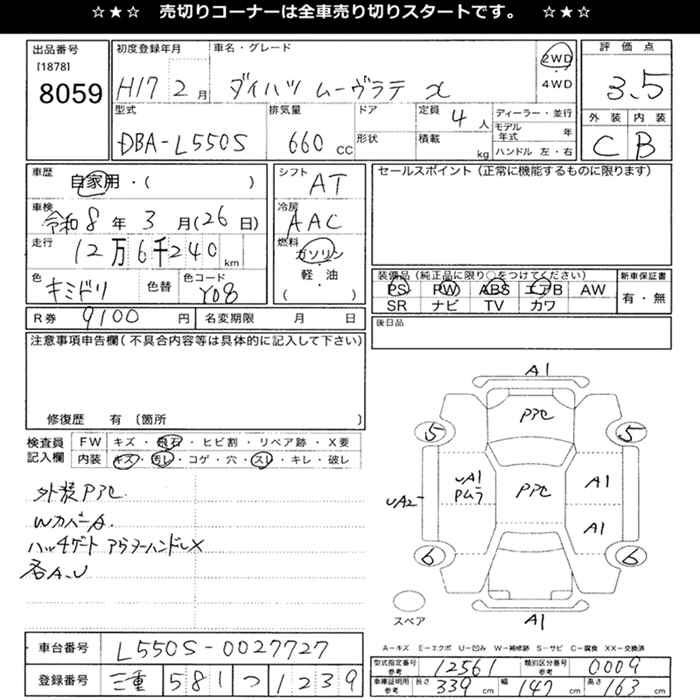 ☆★☆ 売切りコーナーは全車売り切りスタートです。 ☆★☆
出品番号 初度登録年月 車名・グレード 評価点
[1878]
8059 H17 2月 ダイハツ ムーヴラテ X 2WD・4WD 3.5
型式 排気量 ドア 定員 4人 ディーラー・並行 外装 内装
DBA-L550S 660cc 形状 積載 kg モデル年式 年 C B
ハンドル 左・右
車歴 シフト セールスポイント(正常に機能するものに限ります)
自家用・( ) AT
車検 冷房
令和8年3月(26日) AAC
走行 燃料
12万6千240km ガソリン
色 色替 色コード 軽・油 装備品(純正品に限り○をつけてください) 新車保証書
キミドリ Y08 ( ) PS PW ABS エアB AW 有・無
SR ナビ TV カワ
R券 9100円 名変期限 月 日 後日品
注意事項申告欄(不具合内容等は具体的に記入して下さい)
修復歴 有 〔箇所 〕
検査員記入欄 FW キズ・飛石・ヒビ割・リペア跡・X要
内装 キズ・汚レ・コゲ・穴・スレ・キレ・破レ
外装PAL
WカバーA.
ハッチゲート アウターハンドルX
各A.U
A1
PAL
5 5
UA1 A1
UA2 PAL
A1
6 6
スペア A1
A-キズ E-エクボ U-凹み W-補修跡 S-サビ C-腐食 XX-交換済
車台番号 L550S-0027727
型式指定番号 参考 12561 類別区分番号 参考 0009
登録番号 三重 581 つ 1239
車庫証明用 参考 長さ 339cm 幅 147cm 高さ 163cm